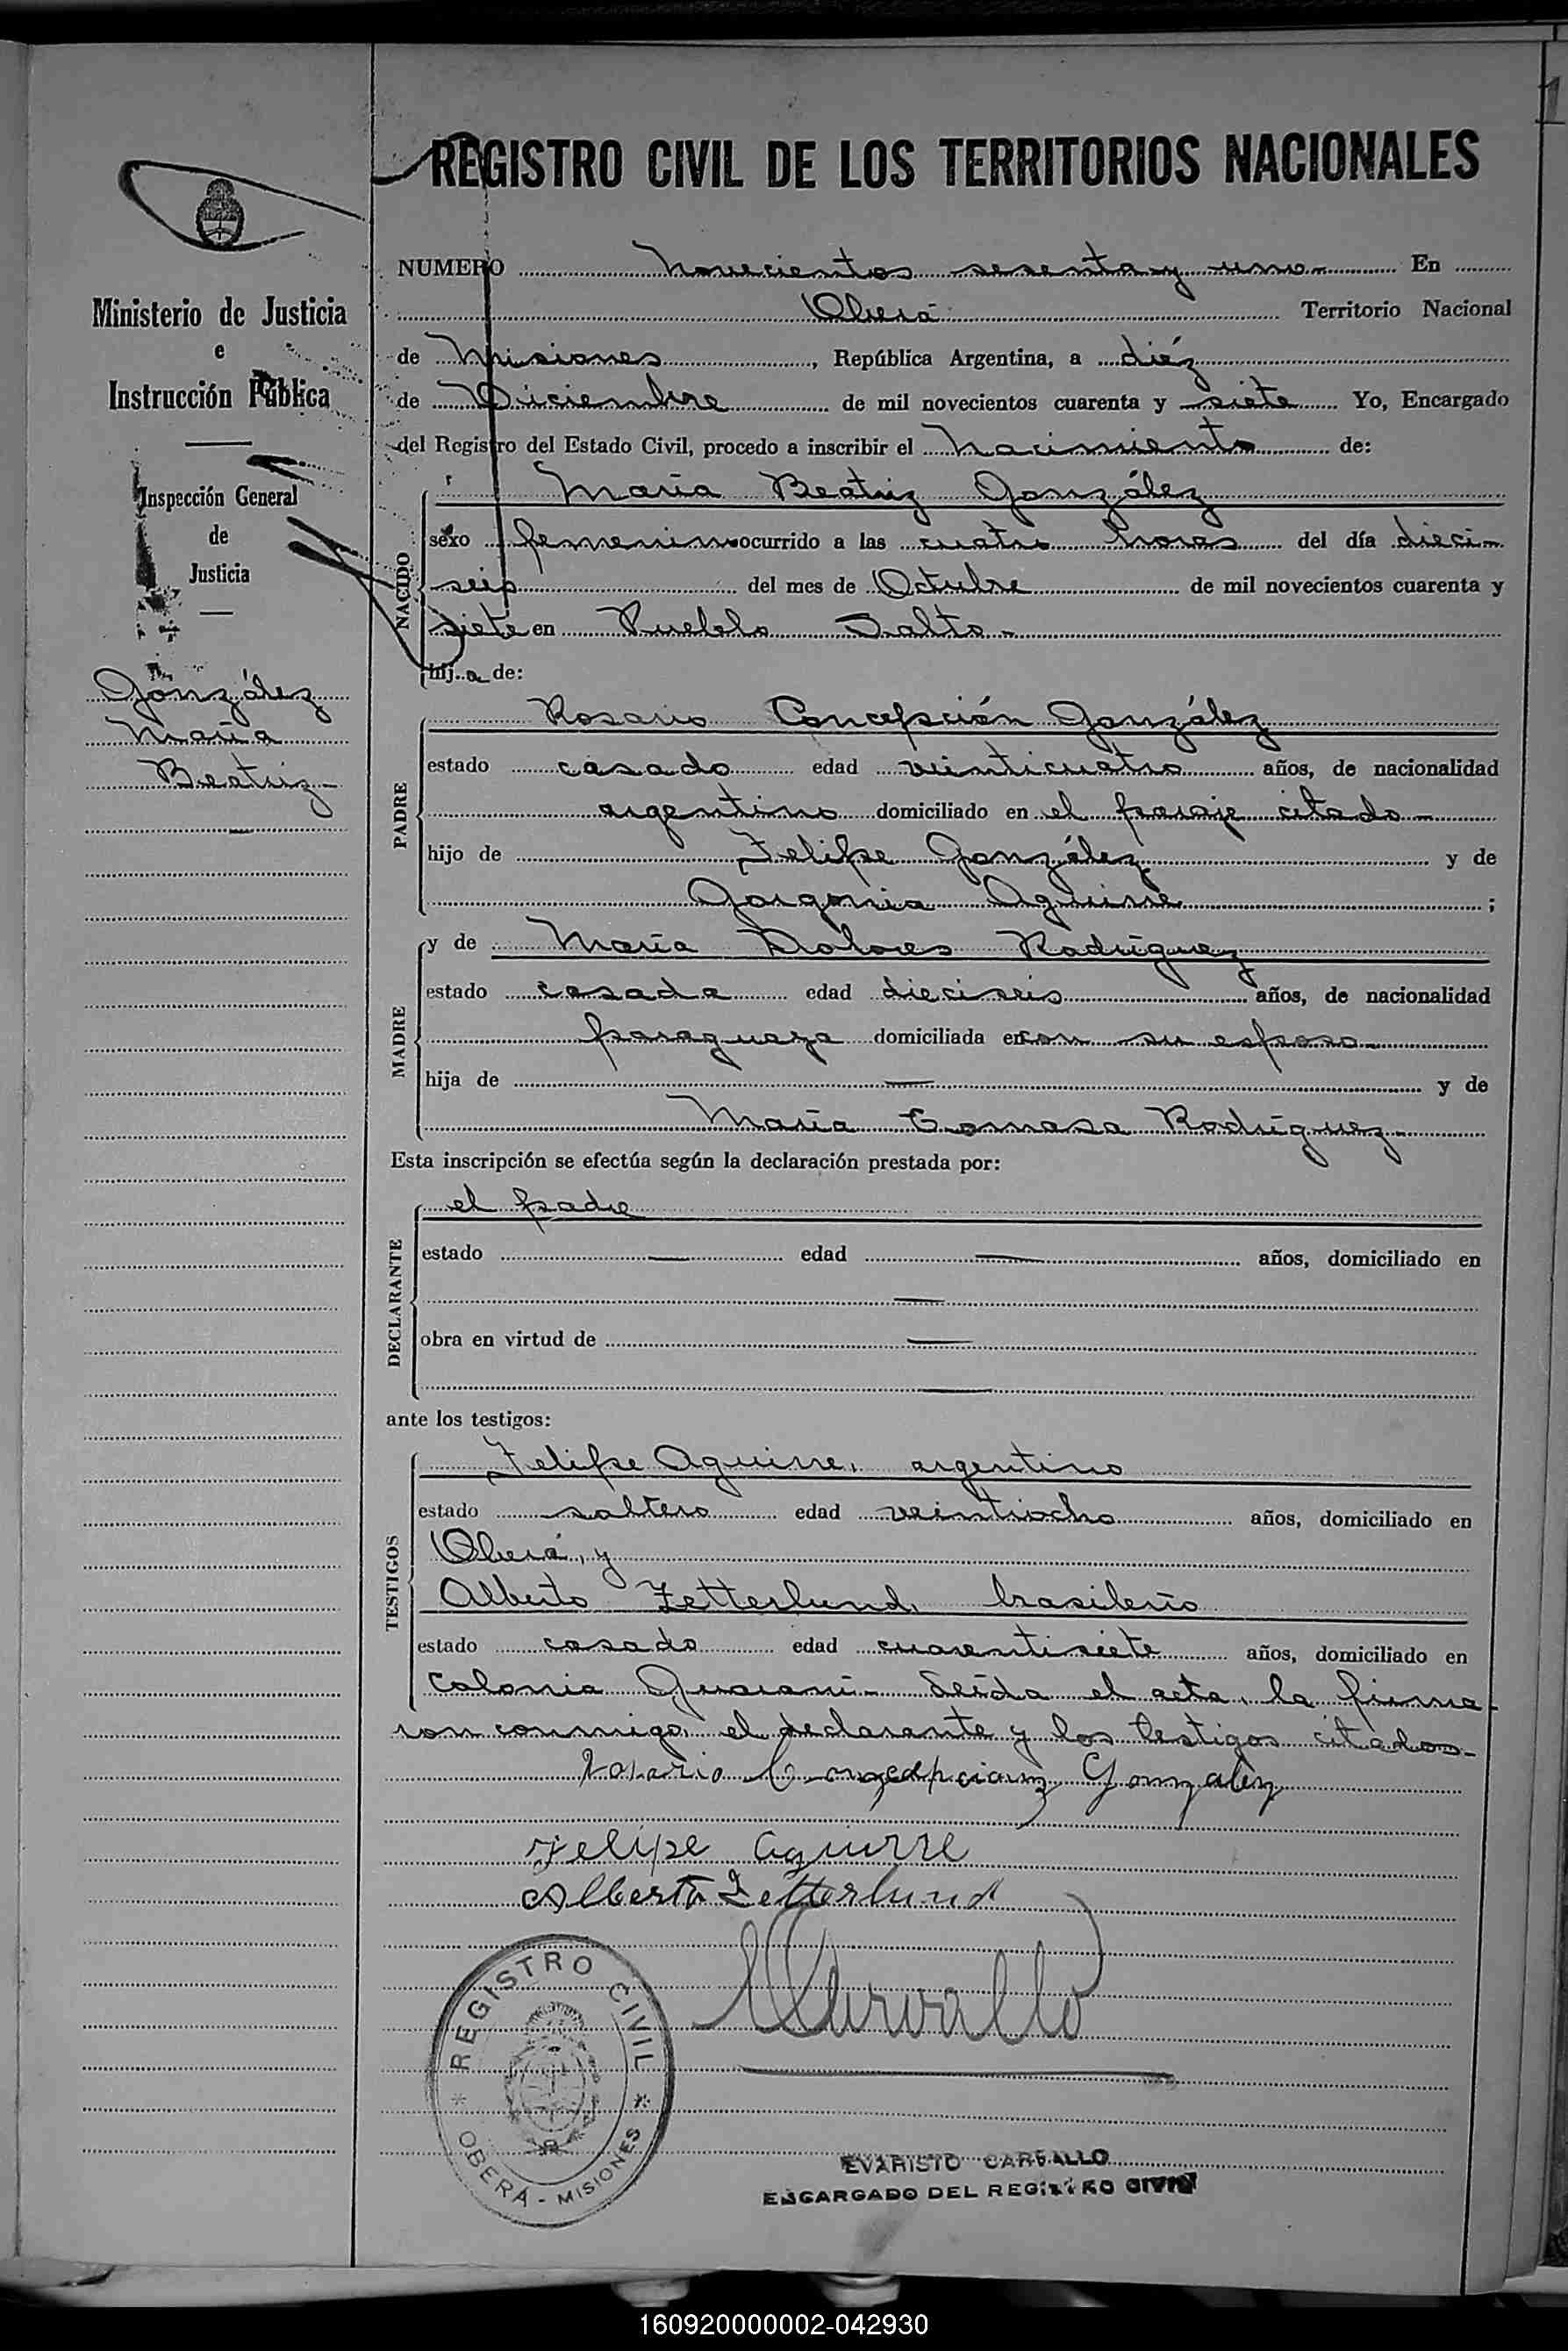 REGISTRO CIVIL DE LOS TERRITORIOS NACIONALES
Ministerio de Justicia
e
Instrucción Pública
Inspección General
de
Justicia
González
María
Beatriz-
NUMERO novecientos sesenta y uno- En
Oberá Territorio Nacional
de Misiones, República Argentina, a diéz
de Diciembre de mil novecientos cuarenta y siete Yo, Encargado
del Registro del Estado Civil, procedo a inscribir el Nacimiento de:
NACIDO
María Beatriz González
sexo femenino ocurrido a las cuatro horas del día dieci-
seis del mes de Octubre de mil novecientos cuarenta y
siete en Pueblo Salto-
hij a de:
PADRE
Rosario Concepción González
estado casado edad veinticuatro años, de nacionalidad
argentino domiciliado en el paraje citado-
hijo de Felipe González y de
Gorgonia Aguirre ;
MADRE
y de María Dolores Rodríguez
estado casada edad dieciseis años, de nacionalidad
paraguaya domiciliada en con su esposo-
hija de — y de
María Tomasa Rodríguez-
Esta inscripción se efectúa según la declaración prestada por:
DECLARANTE
el padre
estado — edad — años, domiciliado en
—
obra en virtud de —
—
ante los testigos:
TESTIGOS
Felipe Aguirre, argentino
estado soltero edad veintiocho años, domiciliado en
Oberá, y
Alberto Zetterlund, brasileño
estado casado edad cuarentisiete años, domiciliado en
Colonia Guaraní- Leída el acta, la firma-
ron conmigo, el declarante y los testigos citados-
Rosario Congcepcionz Gonzalez
Felipe Aguirre
Alberto Zetterlund
ECarvallo
REGISTRO CIVIL
OBERÁ - MISIONES
EVARISTO CARVALLO
ENCARGADO DEL REGISTRO CIVIL
160920000002-042930